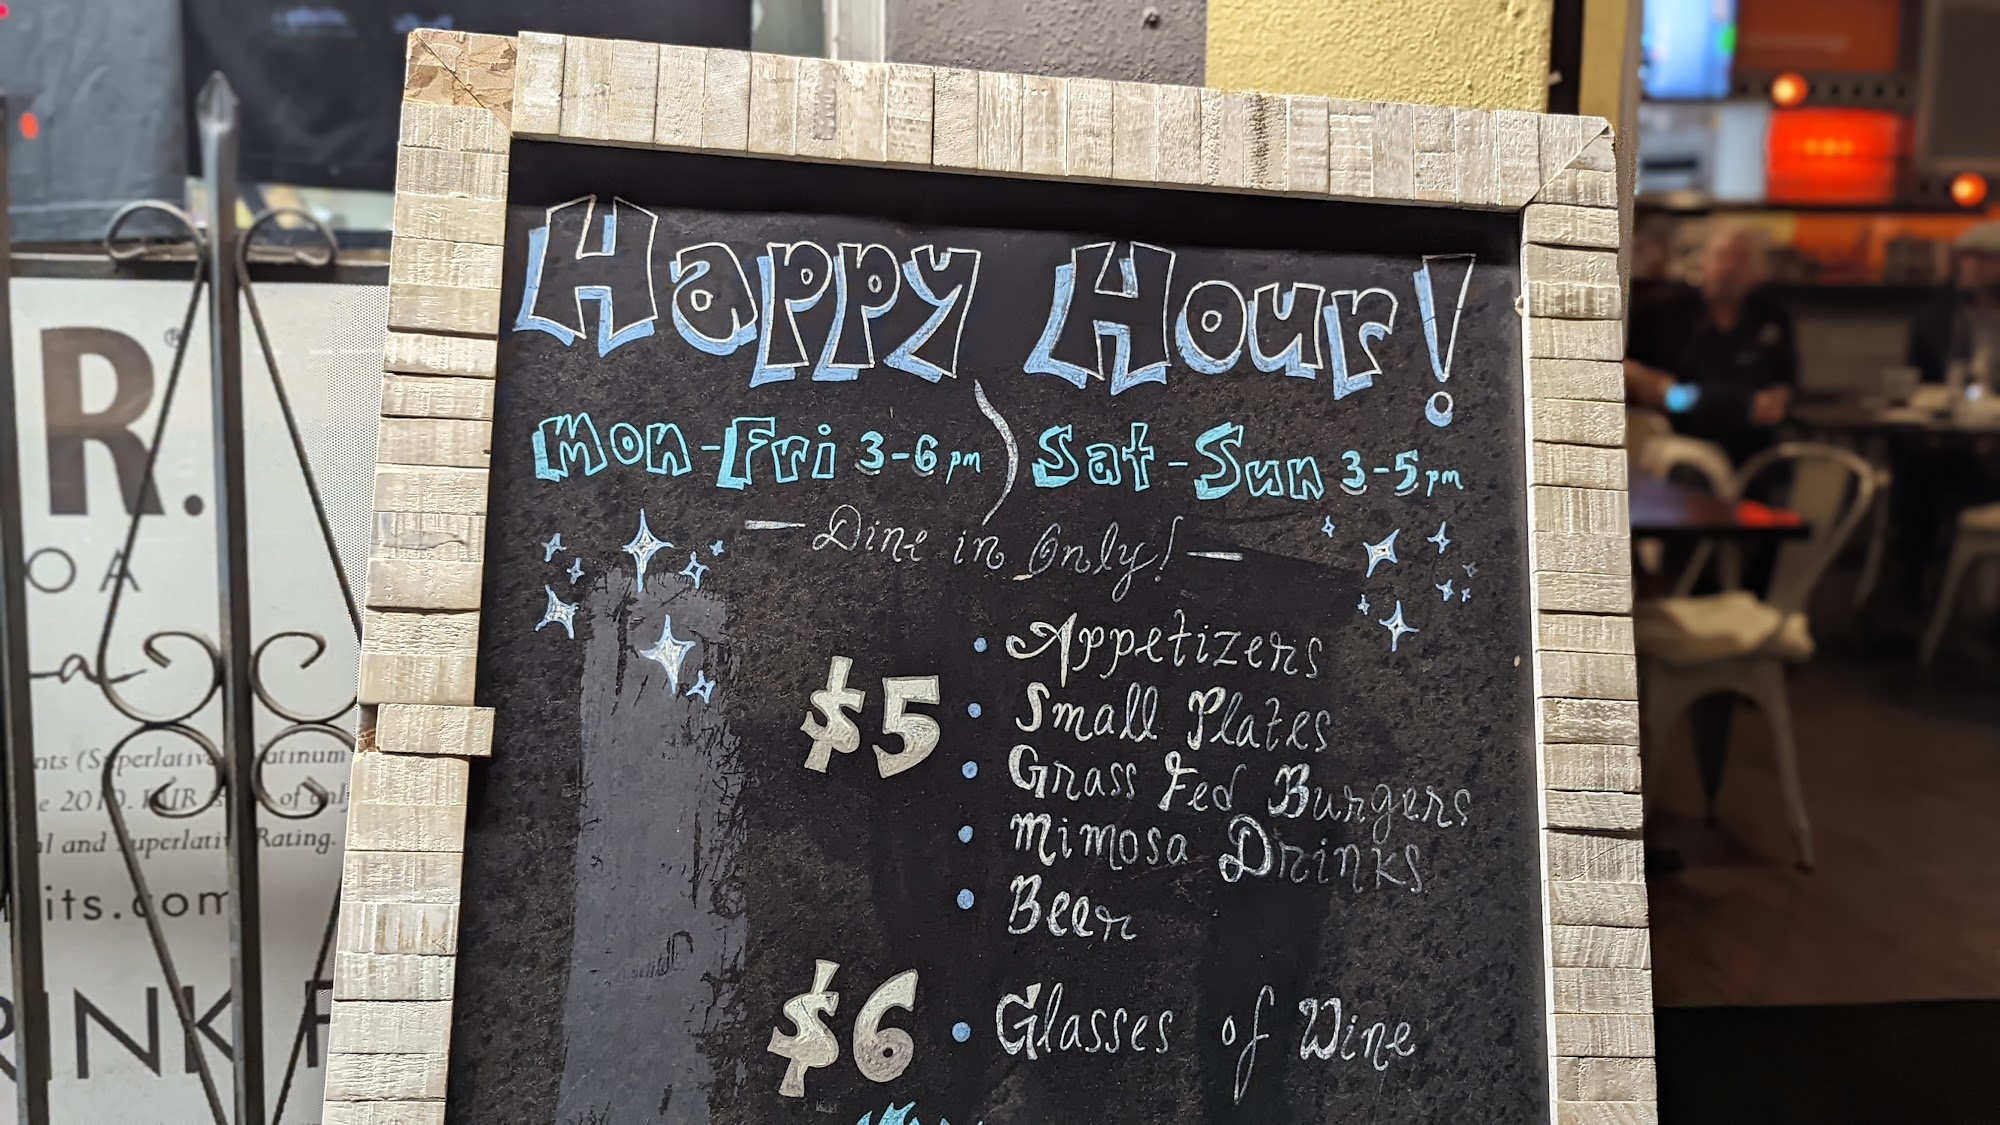 Happy Hour!
Mon-Fri 3-6pm ) Sat-Sun 3-5pm
— Dine in Only! —
$5
• Appetizers
• Small Plates
• Grass Fed Burgers
• Mimosa Drinks
• Beer
$6 • Glasses of Wine
R.®
OA
nts (Superlative Platinum
e 2010. FAIR is of only
al and Superlative Rating.
its.com
RINK